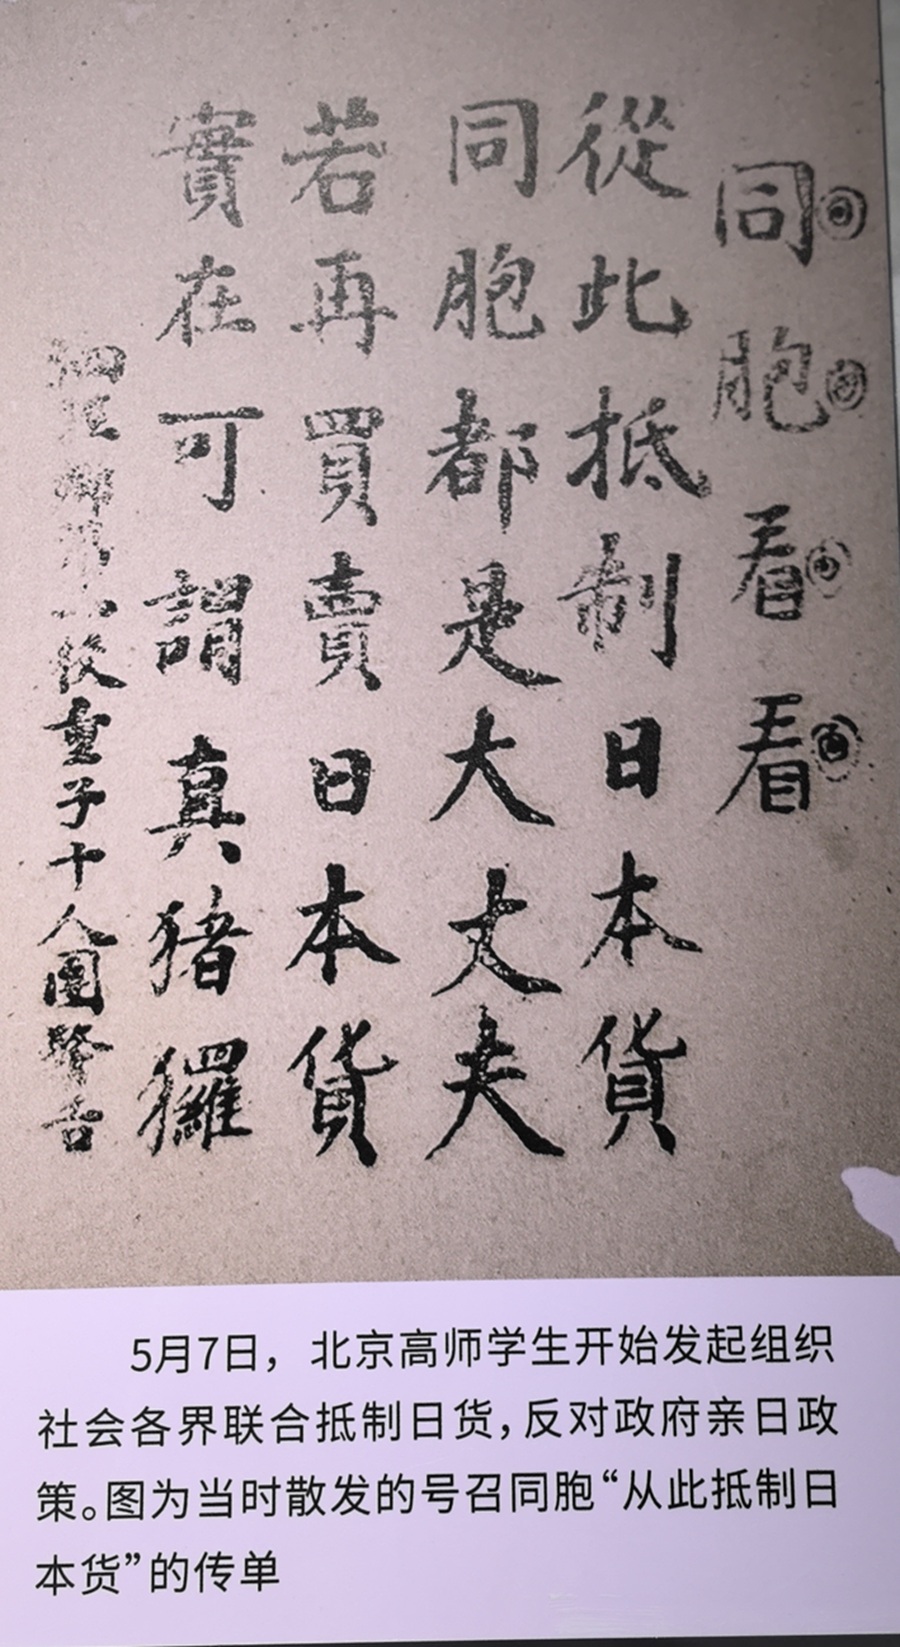 同胞看看
從此抵制日本貨
同胞都是大丈夫
若再買賣日本貨
實在可謂真猪玀
校童子十人團警告
5月7日，北京高师学生开始发起组织
社会各界联合抵制日货，反对政府亲日政
策。图为当时散发的号召同胞“从此抵制日
本货”的传单